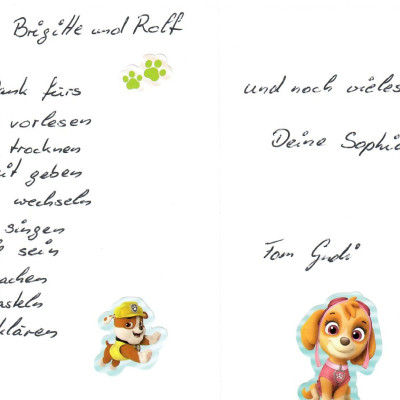 Brigitte und Rolf
ank fürs
vorlesen
trocknen
it geben
wechseln
singen
sein
achen
asteln
klären
und noch vieles
Deine Sophia